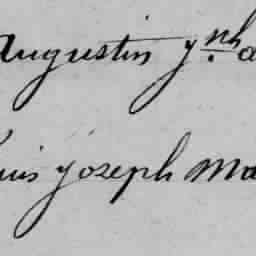 Augustin y.nh a
uis yoseph Ma